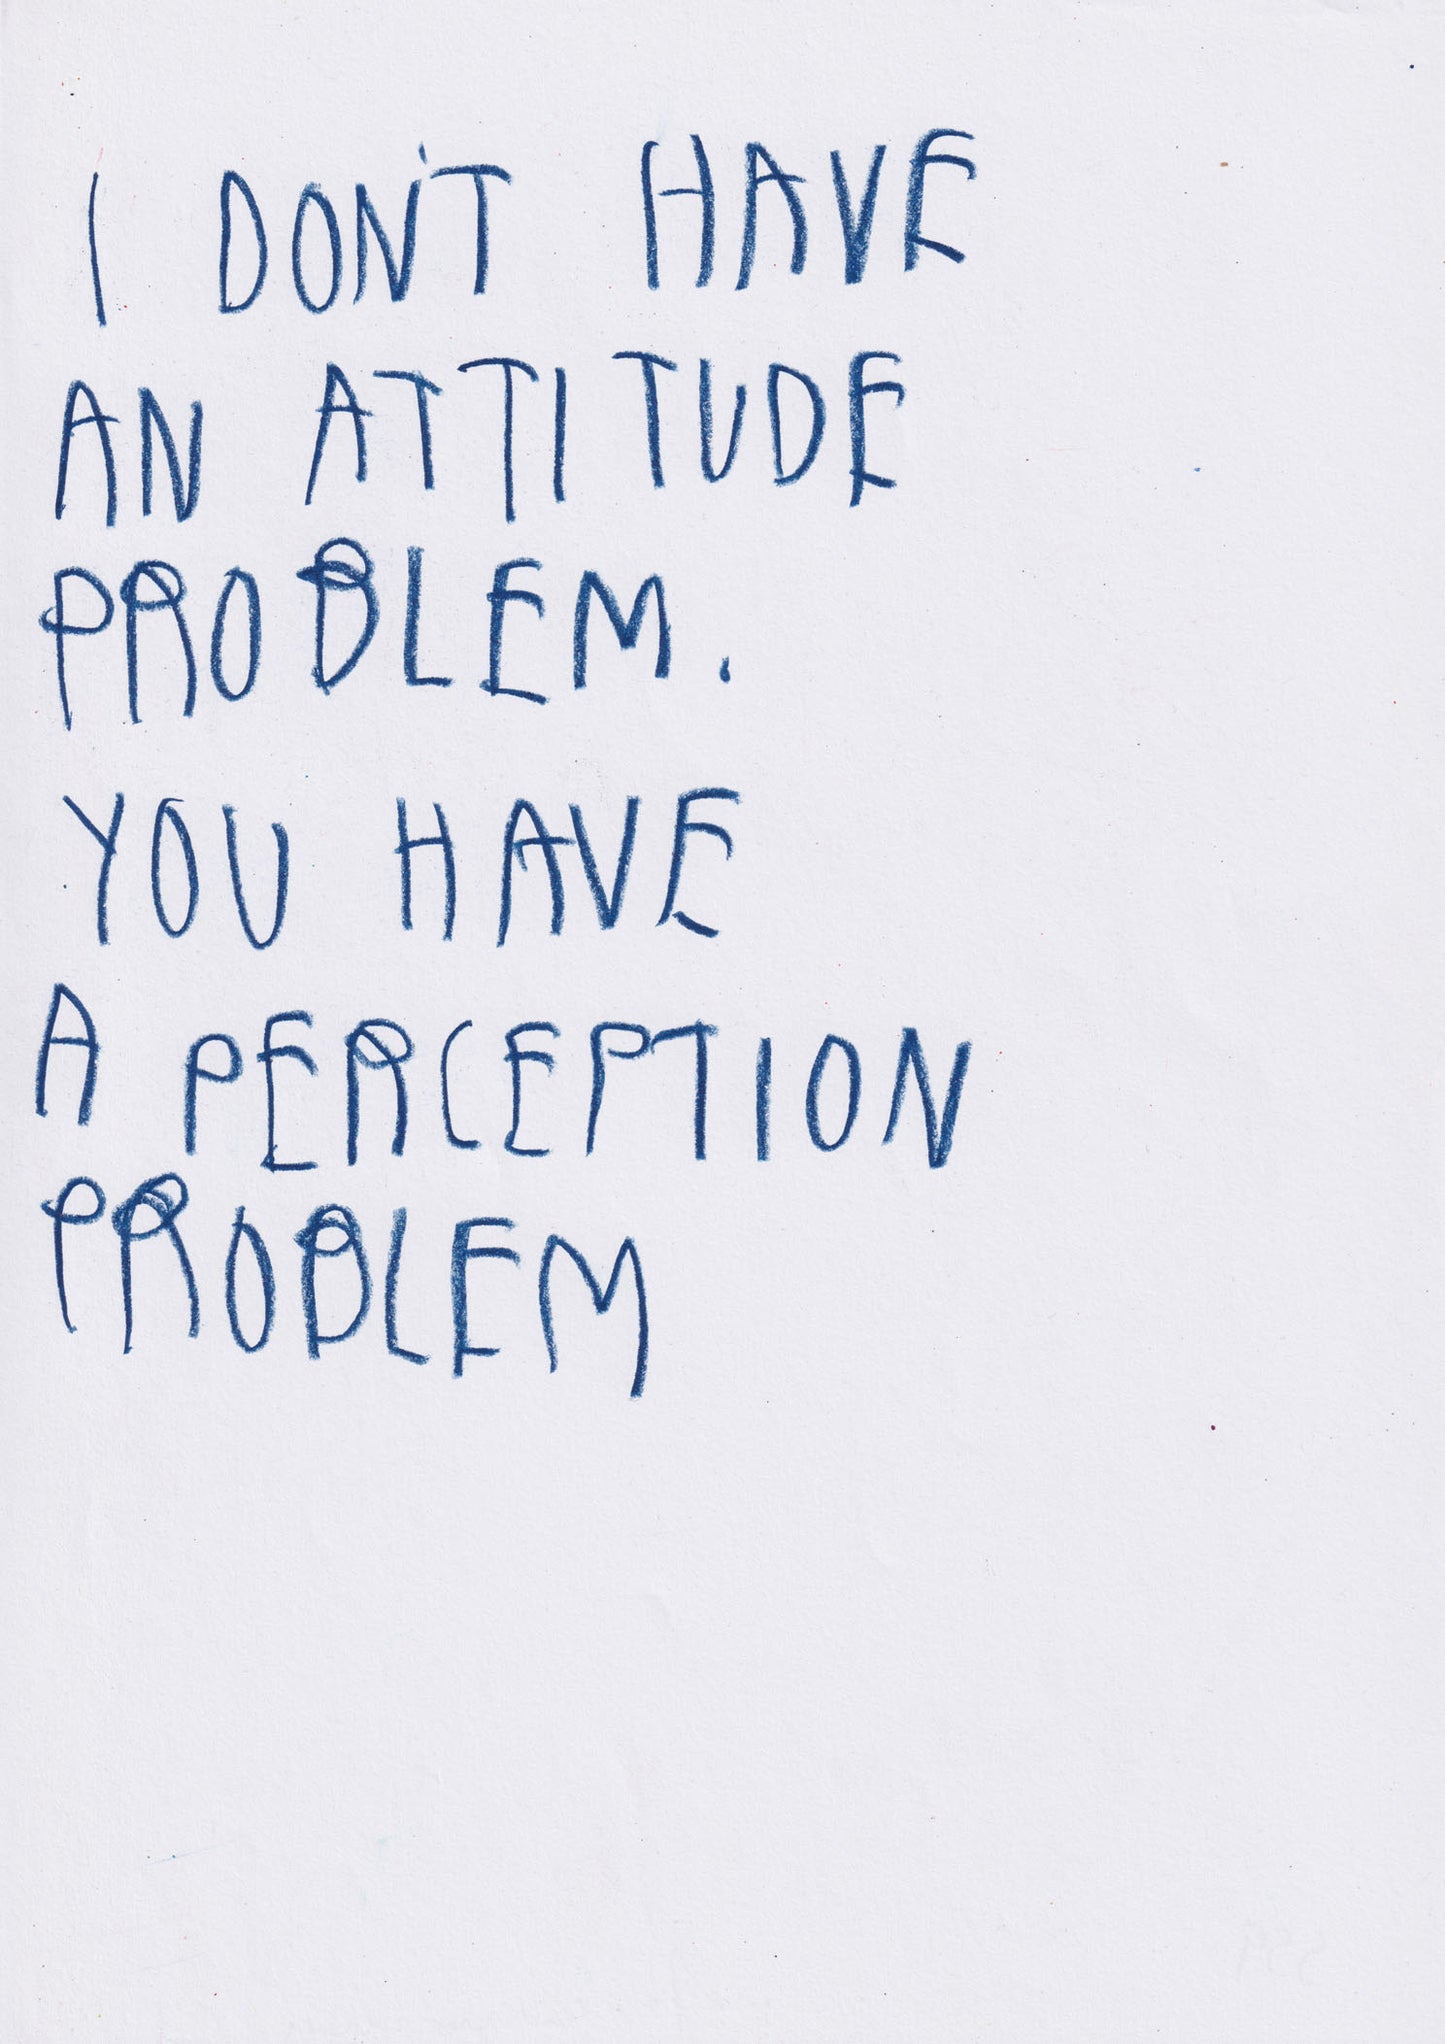 I DON'T HAVE
AN ATTITUDE
PROBLEM.
YOU HAVE
A PERCEPTION
PROBLEM